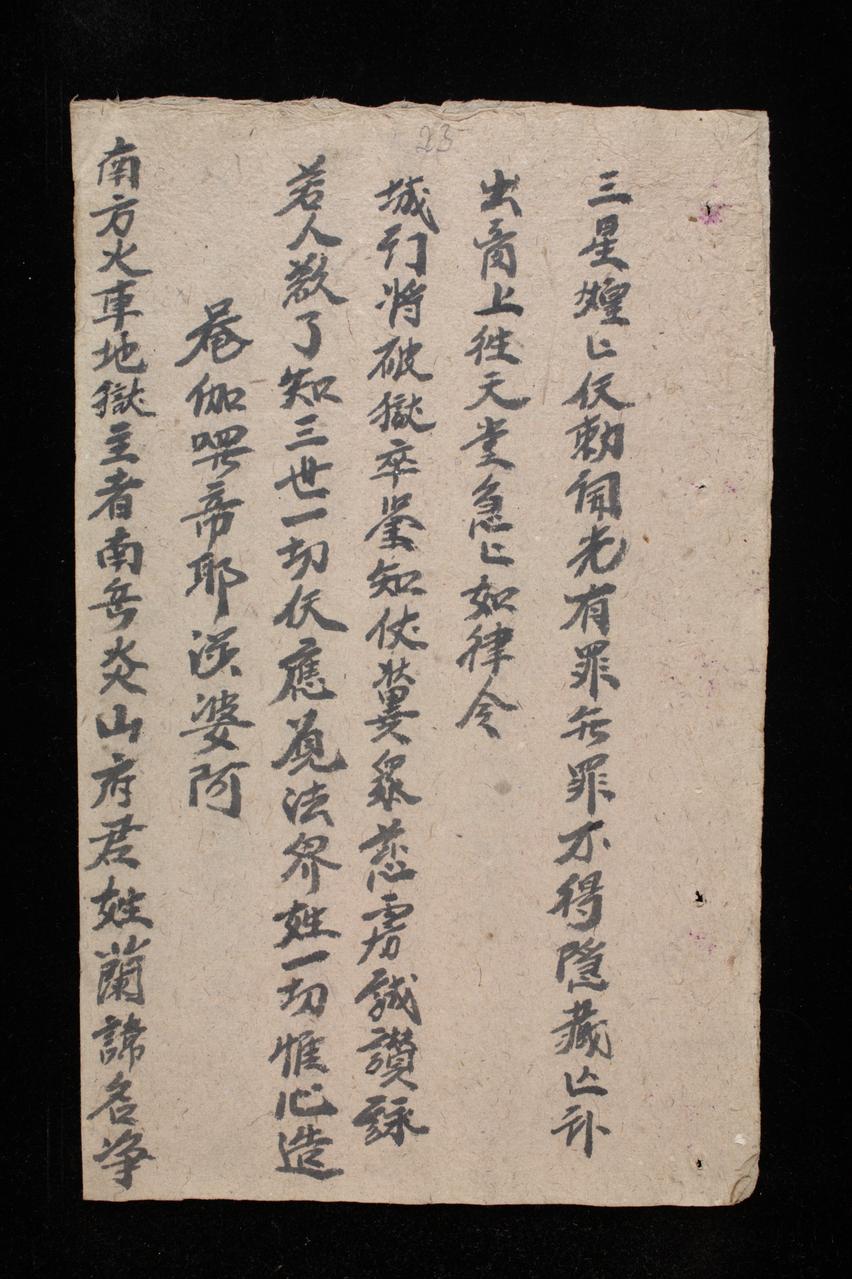 23
三星煌〻仸勅開光有罪无罪不得隱藏亡卦
出啇上徃天堂急〻如律令
城行將破獄卒皆知仗蕢衆慈虔誠讃詠
若人欲了知三世一切仸應覌法界姓一切惟心造
菴伽囉帝耶娑婆阿
南方火車地獄主者南岳炎山府君姓蘭諱名净